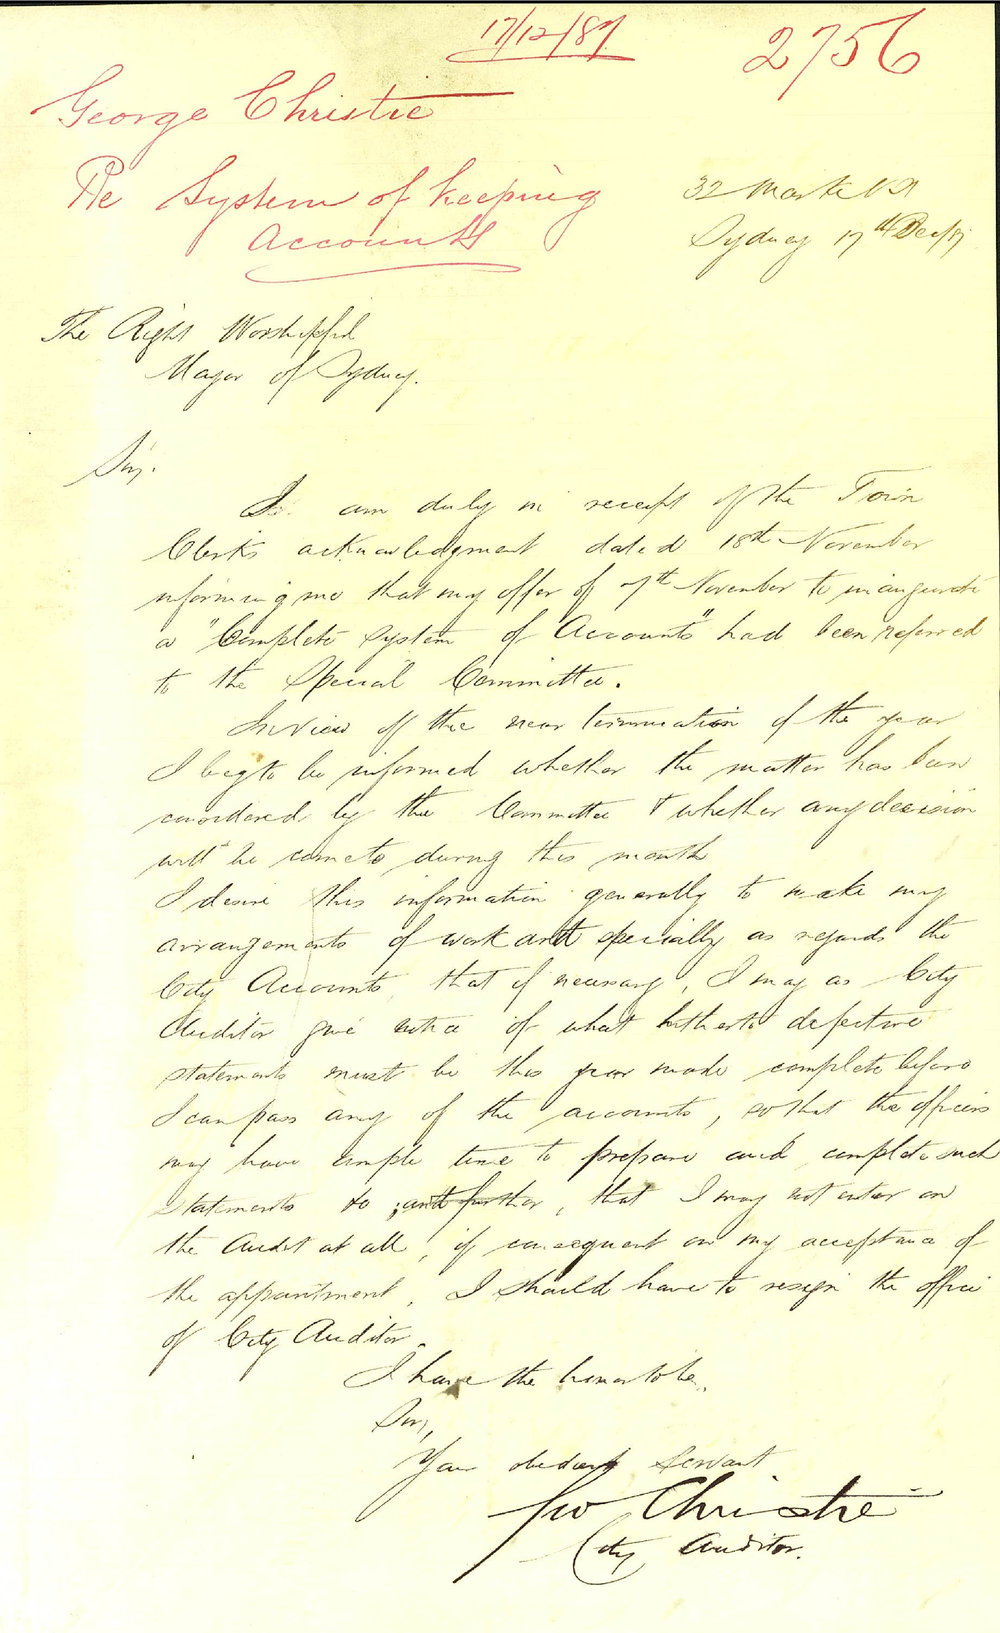 17/12/87
2756
George Christie
Re System of keeping
Accounts
32 Market St
Sydney 17th Dec/87
The Right Worshipful
Mayor of Sydney.
Sir.
I am duly in receipt of the Town
Clerk's acknowledgment dated 18th November
informing me that my offer of 7th November to inaugurate
a "Complete System of Accounts" had been referred
to the Special Committee.
In view of the near termination of the year
I beg to be informed whether the matter has been
considered by the Committee & whether any decision
will be come to during this month
I desire this information generally to make my
arrangements of work and specially as regards the
City Accounts, that if necessary, I may as City
Auditor give notice of what hitherto defective
statements must be this year made complete before
I can pass any of the accounts, so that the officers
may have ample time to prepare and complete such
statements to ; and further, that I may not enter on
the Audit at all, if consequent on my acceptance of
the appointment, I should have to resign the office
of City Auditor.
I have the honor to be,
Sir,
Your obedient Servant
Geo Christie
City Auditor.